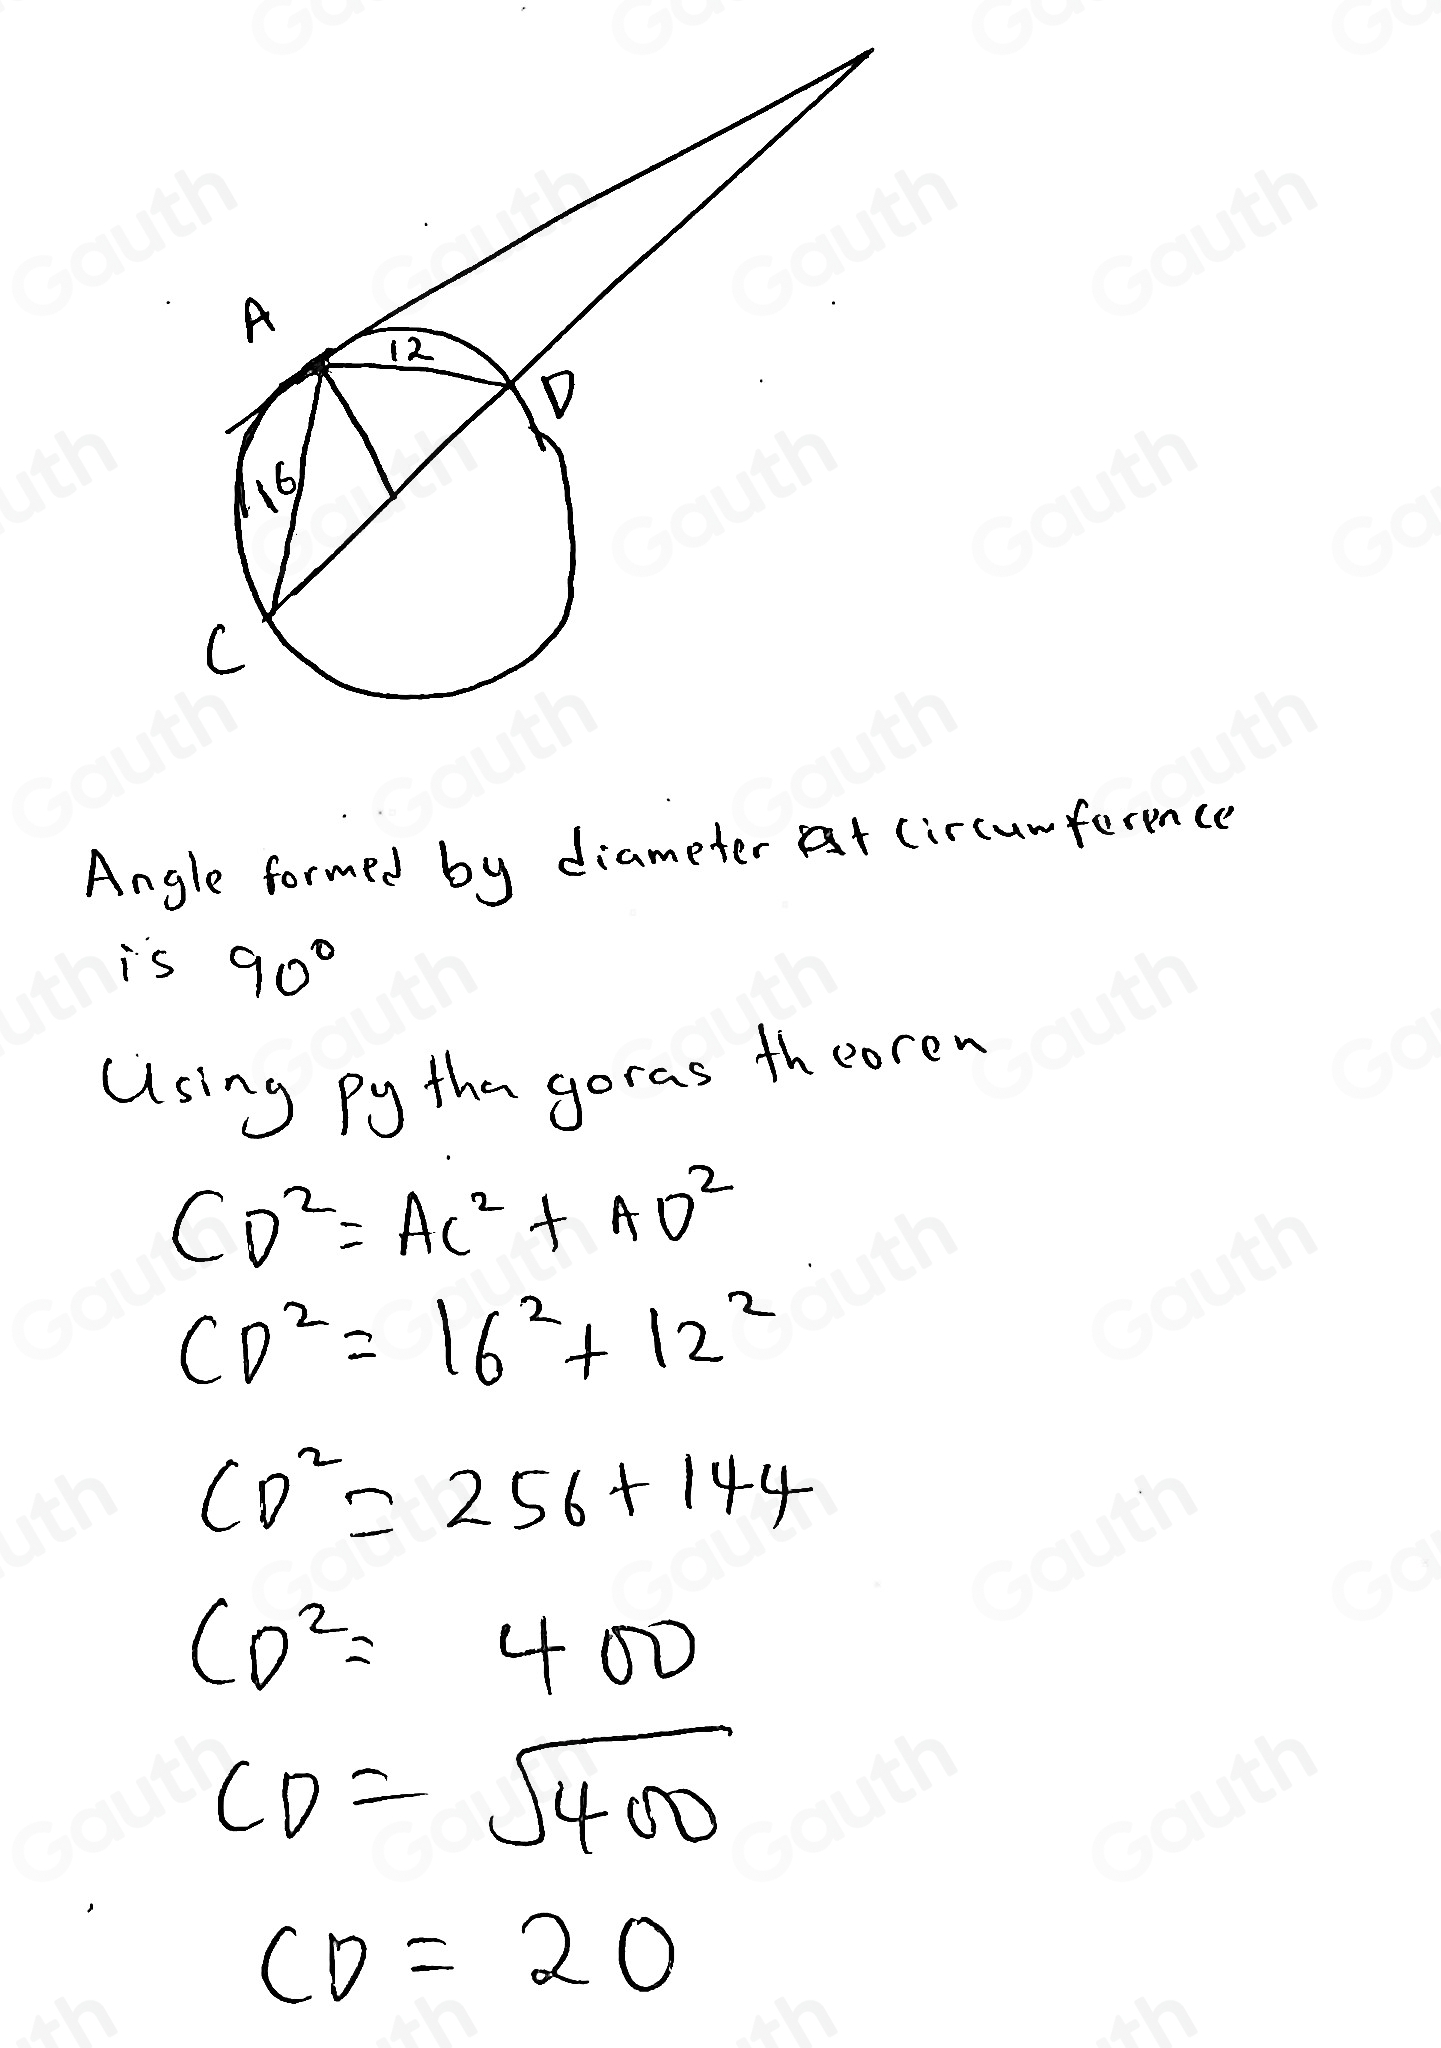 A
12
D
16
C
Angle formed by diameter at circumference
is 90°
Using pythagoras theoren
CD² = AC² + AD²
CD² = 16² + 12²
CD² = 256 + 144
CD² = 400
CD = √400
CD = 20